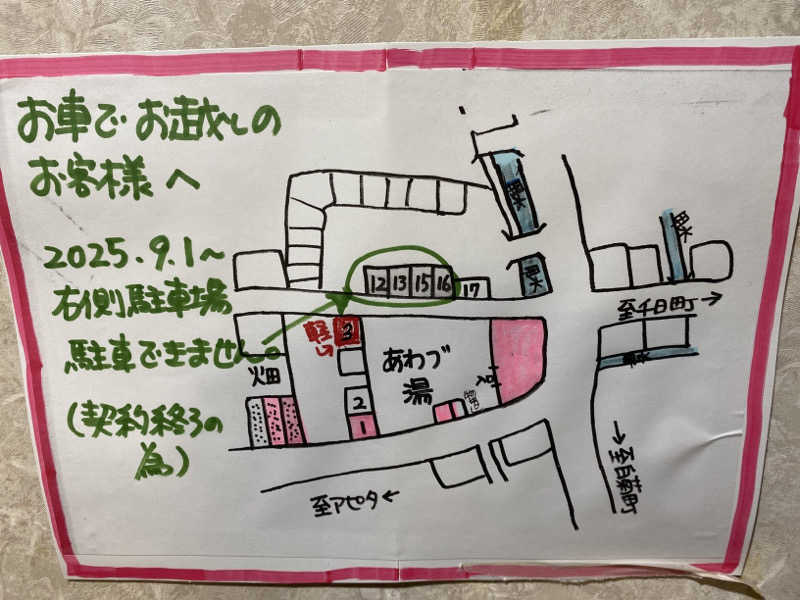 お車でお越しの
お客様へ
2025.9.1～
右側駐車場
駐車できません。
(契約終了の
為)
12 13 15 16 17
軽 3
畑
あわづ
湯
2
1
用水
用水
用水
用水
至千日町→
→至白菊町
至アピタ←